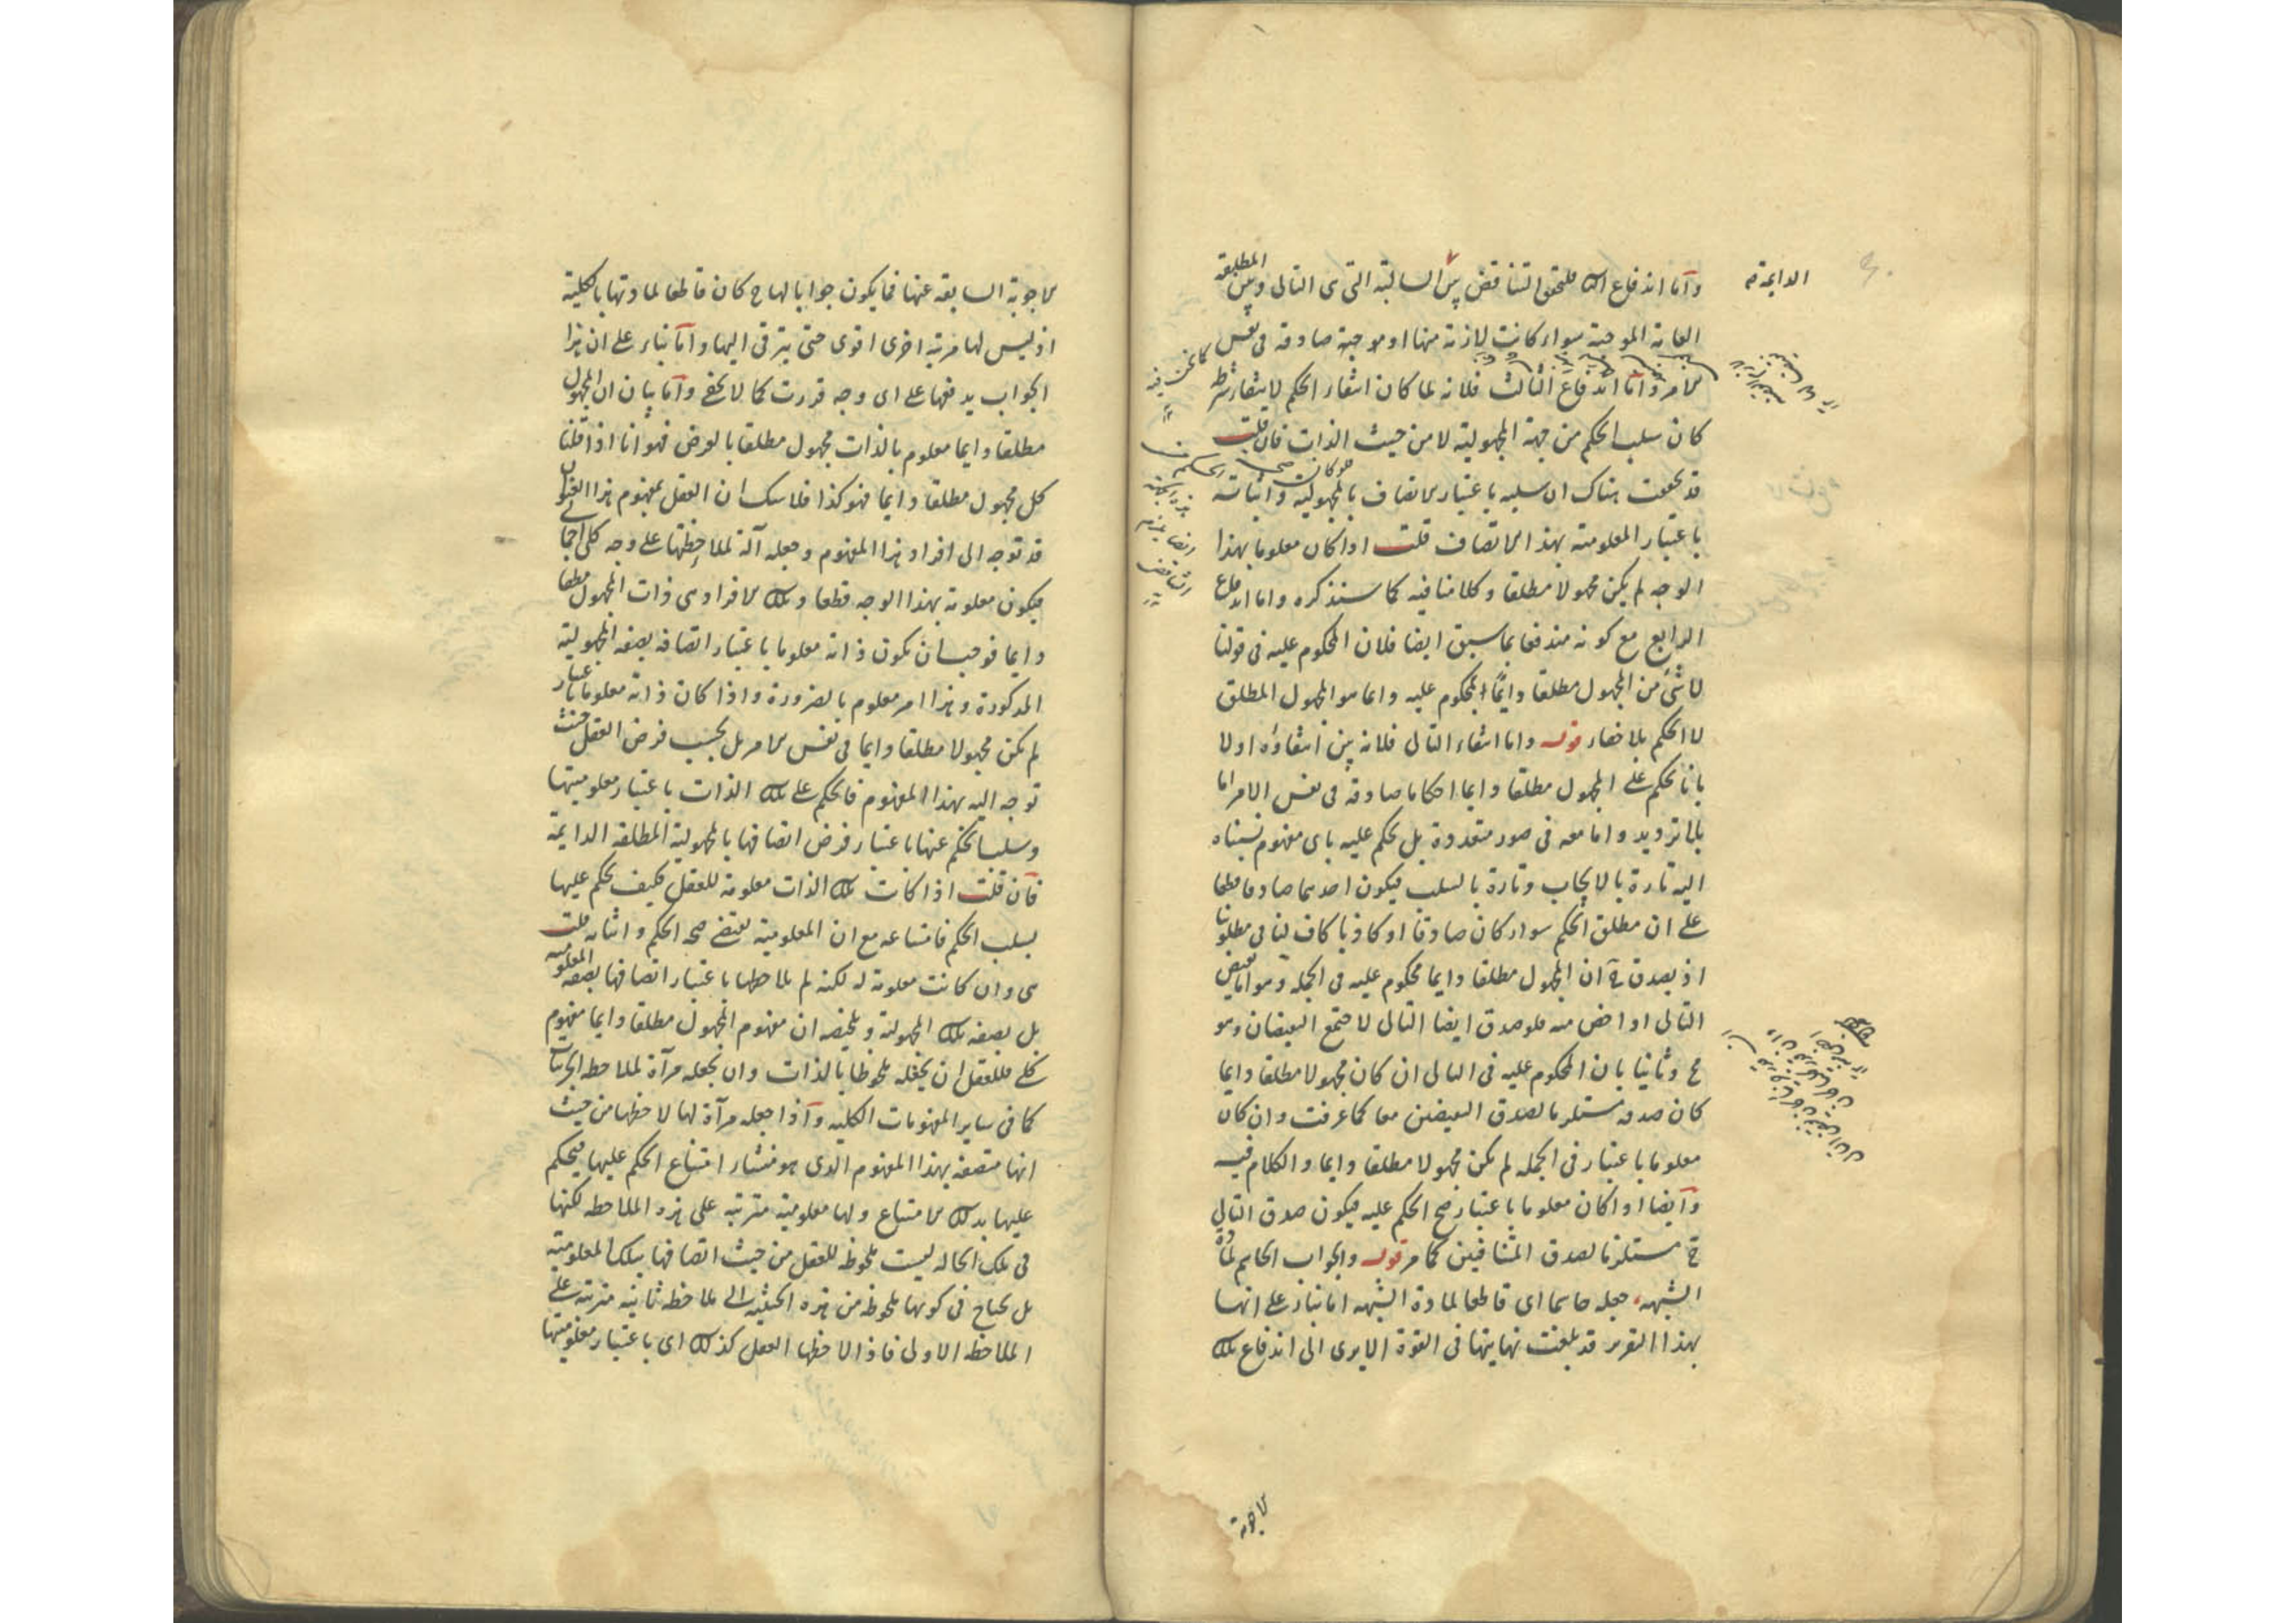 واما اندفاع الثانى فلتحقق التناقض بين السالبة التى هى التالى وبين المطلقة
الدايمة
العامة الموجبة سواء كانت لازمة منها او موجبة صادقة فى نفس
الامر واما اندفاع الثالث فلانه لما كان انتفاء الحكم لانتفاء شرطه
كان سلب الحكم من جهة المجهولية لا من حيث الذات فان قلت
قد تحققت هناك ان سلبه باعتبار الاتصاف بالمجهولية واثباته
باعتبار المعلومية بهذا الاتصاف قلت اذا كان معلوما بهذا
الوجه لم يكن مجهولا مطلقا وكلامنا فيه كما ستذكره واما اندفاع
الرابع مع كونه مندفعا بما سبق ايضا فلان المحكوم عليه فى قولنا
لا شئ من المجهول مطلقا دايما المحكوم عليه دايما هو المجهول المطلق
لا الحكم بالاخبار قوله واما انتفاء التالى فلانه بين انتفاؤه اولا
بانا نحكم على المجهول مطلقا دايما احكاما صادقة فى نفس الامر اما
بالترديد واما معه فى صور متعددة بل نحكم عليه باى مفهوم نسبناه
اليه تارة بالايجاب وتارة بالسلب فيكون احدهما صادقا قطعا
على ان مطلق الحكم سواء كان صادقا او كاذبا كاف لنا فى مطلوبنا
اذ يصدق ح ان المجهول مطلقا دايما محكوم عليه فى الجملة وهو اما نقيض
التالى او اخص منه فلو صدق ايضا التالى لاجتمع النقيضان وهو
مح وثانيا بان المحكوم عليه فى التالى ان كان مجهولا مطلقا دايما
كان صدقه مستلزما لصدق النقيضين معا كما عرفت وان كان
معلوما باعتبار فى الجملة لم يكن مجهولا مطلقا دايما والكلام فيه
وايضا اذا كان معلوما باعتبار صح الحكم عليه فيكون صدق التالى
ح مستلزما لصدق المتنافيين كما مر قوله والجواب الحاسم لمادة
الشبهة جعله حاسما اى قاطعا لمادة الشبهة اما بناء على انها
بهذا التقرير قد بلغت نهايتها فى القوة الا يرى الى اندفاع تلك
الاجوبة
الاجوبة السابقة عنها فما يكون جوابا لها ح كان قاطعا لمادتها بالكلية
اذ ليس لها مرتبة اخرى اقوى حتى يترقى اليها واما بناء على ان هذا
الجواب يدفعها على اى وجه قررت كما لا يخفى واما بيان ان المجهول
مطلقا دايما معلوم بالذات مجهول مطلقا بالفرض فهو انا اذا قلنا
كل مجهول مطلقا دايما فهو كذا فلا شك ان العقل بمفهوم هذا العنوان
قد توجه الى افراد هذا المفهوم وجعله آلة لملاحظتها على وجه كلى اجمالى
فيكون معلومة بهذا الوجه قطعا وتلك الافراد هى ذات المجهول مطلقا
دايما فوجب ان يكون ذاته معلوما باعتبار اتصافه بصفة المجهولية
المذكورة وهذا امر معلوم بالضرورة واذا كان ذاته معلوما باعتبار
لم يكن مجهولا مطلقا دايما فى نفس الامر بل بحسب فرض العقل حيث
توجه اليه بهذا المفهوم فالحكم على تلك الذات باعتبار معلوميتها
وسلب الحكم عنها باعتبار فرض اتصافها بالمجهولية المطلقة الدايمة
فان قلت اذا كانت تلك الذات معلومة للعقل فكيف يحكم عليها
بسلب الحكم فامتناعه مع ان المعلومية تقتضى صحة الحكم واثباته قلت
هى وان كانت معلومة له لكنه لم يلاحظها باعتبار اتصافها بصفة المعلومية
بل بصفة تلك المجهولية وتلخيصه ان مفهوم المجهول مطلقا دايما مفهوم
كلى فللعقل ان يجعله ملحوظا بالذات وان يجعله مرآة لملاحظة الجزئيات
كما فى ساير المفهومات الكلية واذا جعله مرآة لها لاحظها من حيث
انها متصفة بهذا المفهوم الذى هو منشاء امتناع الحكم عليها فيحكم
عليها بذلك الامتناع ولها معلومية مترتبة على هذه الملاحظة لكنها
فى تلك الحالة ليست ملحوظة للعقل من حيث اتصافها بتلك المعلومية
بل يحتاج فى كونها ملحوظة من هذه الحيثية الى ملاحظة ثانية مترتبة على
الملاحظة الاولى فاذا لاحظها العقل كذلك اى باعتبار معلوميتها